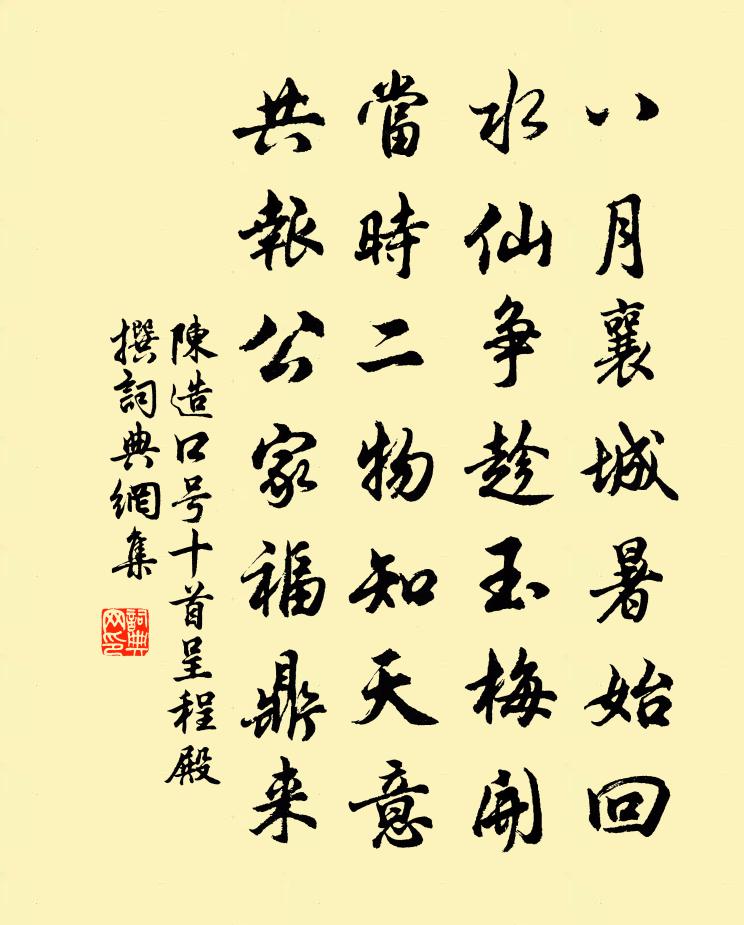 八月襄城暑始回
水仙争趁玉梅開
當時二物知天意
共報公家福鼎来
陳造口号十首呈程殿
撰詞典網集
詞典
网印